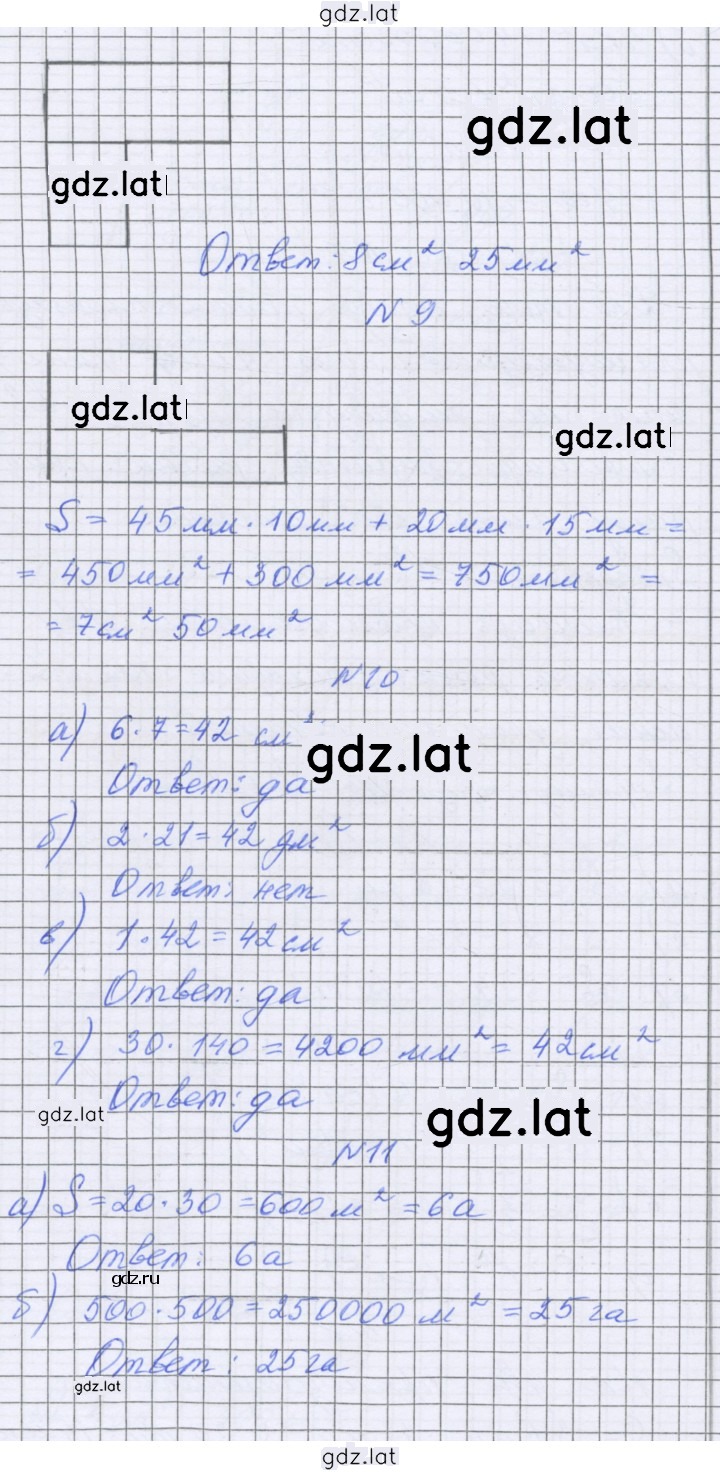 gdz.lat
gdz.lat
gdz.lat
Ответ: 8 см² 25 мм²
N 9
gdz.lat
gdz.lat
S = 45 мм · 10 мм + 20 мм · 15 мм =
= 450 мм² + 300 мм² = 750 мм² =
= 7 см² 50 мм²
N10
а) 6 · 7 = 42 см²
gdz.lat
Ответ: да
б) 2 · 21 = 42 дм²
Ответ: нет
в) 1 · 42 = 42 см²
Ответ: да
г) 30 · 140 = 4200 мм² = 42 см²
Ответ: да
gdz.lat
gdz.lat
N11
а) S = 20 · 30 = 600 м² = 6а
Ответ: 6а
gdz.ru
б) 500 · 500 = 250000 м² = 25 га
Ответ: 25 га
gdz.lat
gdz.lat